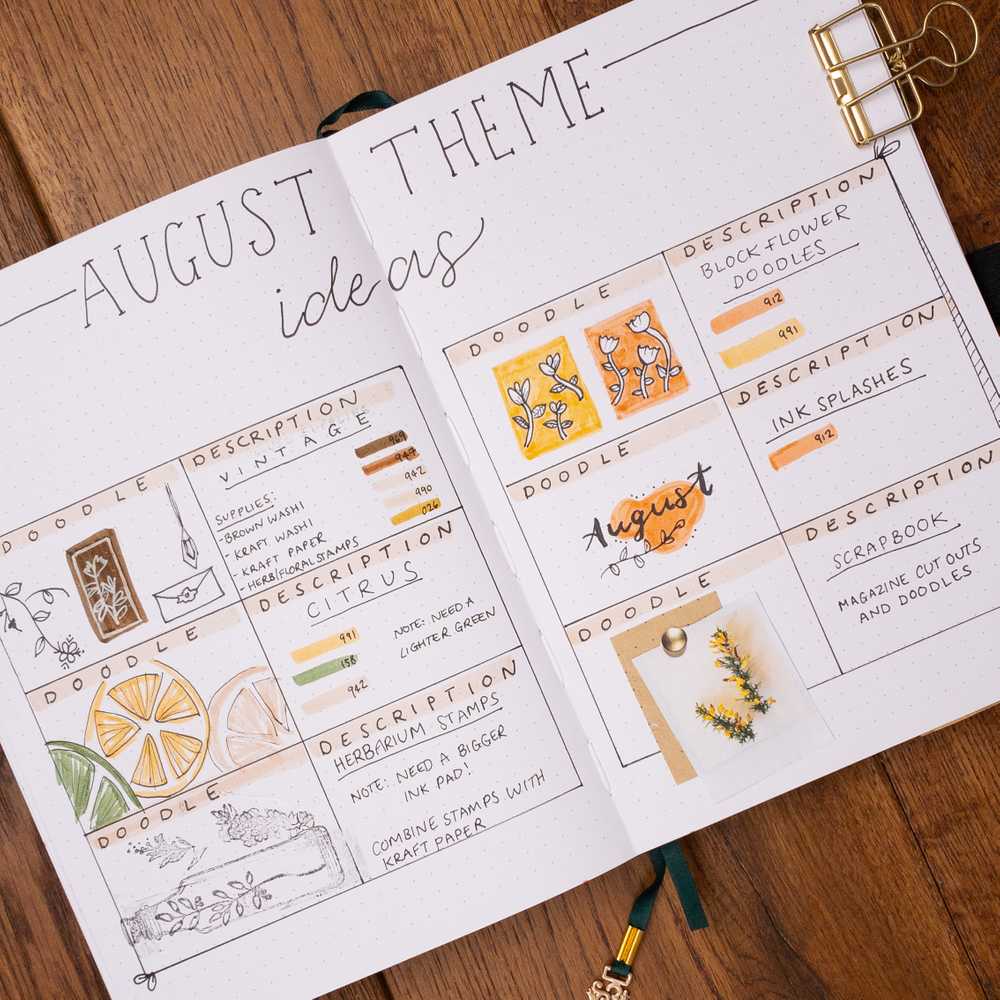 AUGUST THEME
ideas
DOODLE
DESCRIPTION
VINTAGE
SUPPLIES:
- BROWN WASHI
- KRAFT WASHI
- KRAFT PAPER
- HERB/FLORAL STAMPS
969
949
942
990
026
DOODLE
DESCRIPTION
CITRUS
991
158
942
NOTE: NEED A
LIGHTER GREEN
DOODLE
DESCRIPTION
HERBARIUM STAMPS
NOTE: NEED A BIGGER
INK PAD!
COMBINE STAMPS WITH
KRAFT PAPER
DOODLE
DESCRIPTION
BLOCK FLOWER
DOODLES
912
991
DOODLE
August
DESCRIPTION
INK SPLASHES
912
DOODLE
DESCRIPTION
SCRAPBOOK
MAGAZINE CUT OUTS
AND DOODLES